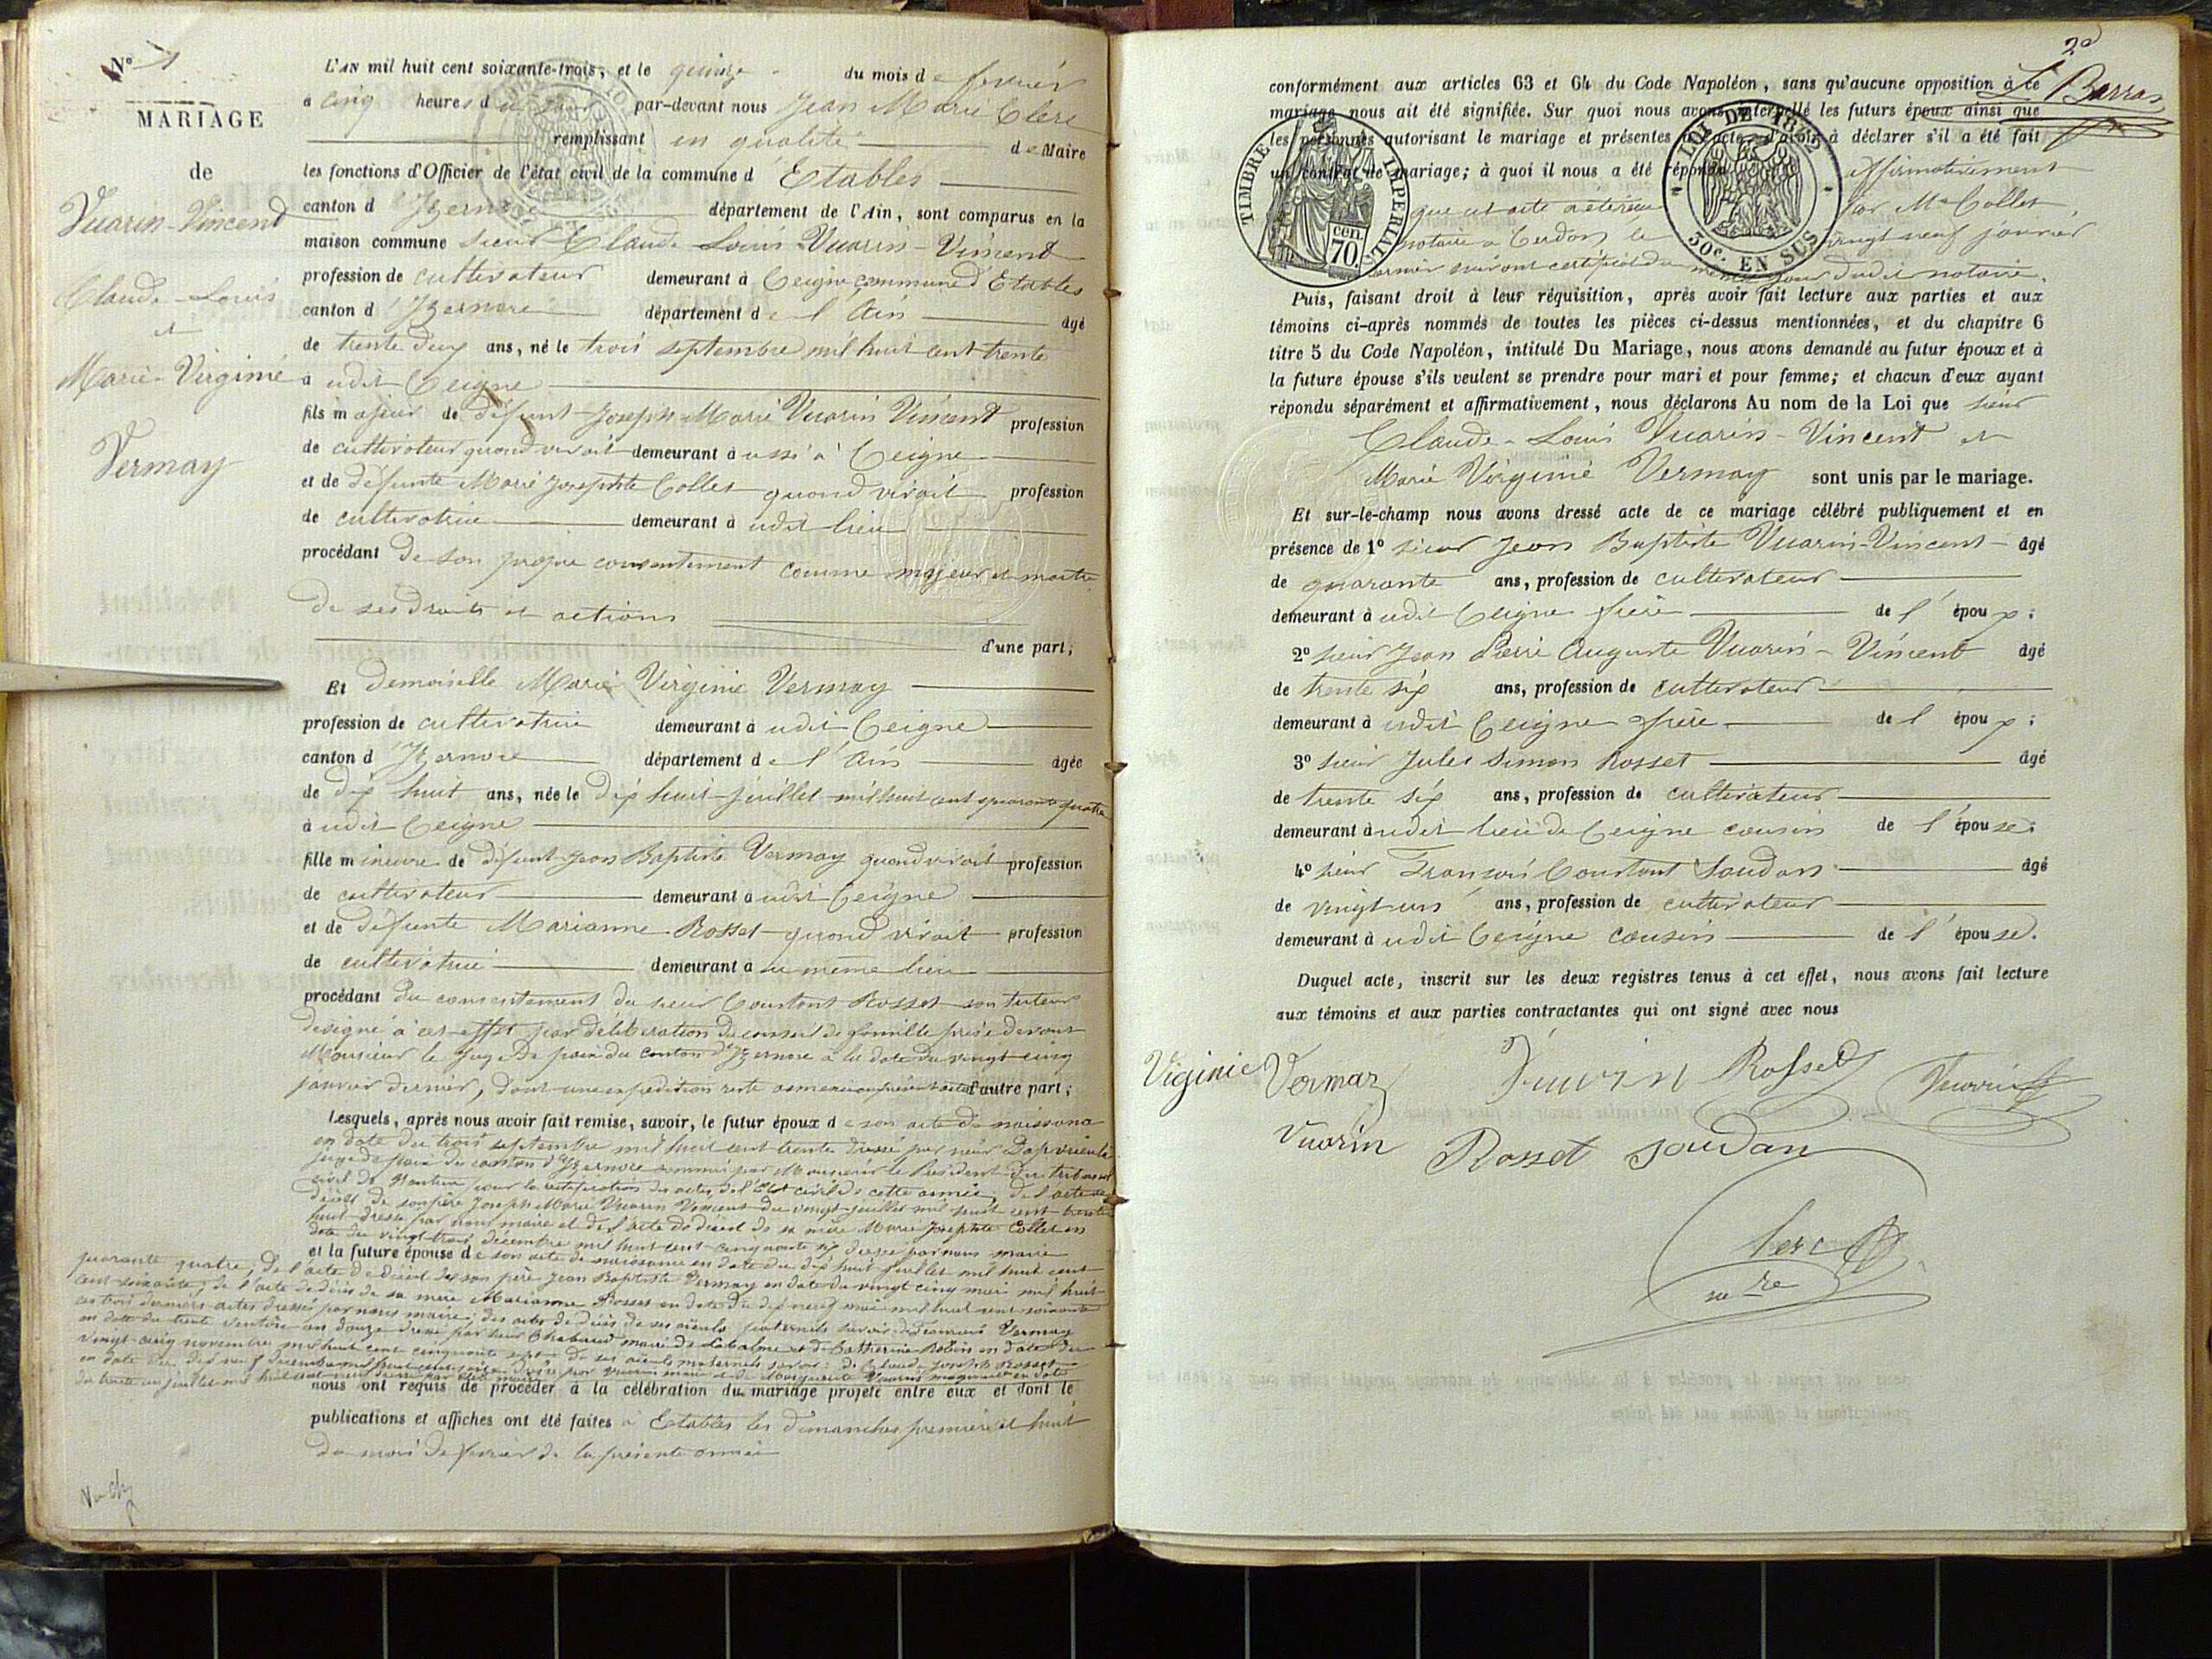 N° 1
MARIAGE
de
Vuarin-Vincent
Claude-Louis
et
Marie-Virginie
Vermay
L'AN mil huit cent soixante-trois, et le quinze du mois de fevrier
à cinq heures du soir par-devant nous Jean Marie Clerc
remplissant en qualité de Maire
les fonctions d'Officier de l'état civil de la commune d'Etables
canton d'Izernore département de l'Ain, sont comparus en la
maison commune sieur Claude-Louis Vuarin-Vincent
profession de cultivateur demeurant à Ceigne commune d'Etables
canton d'Izernore département de l'Ain âgé
de trente deux ans, né le trois septembre mil huit cent trente
à udit Ceigne
fils majeur de défunt Joseph-Marie Vuarin Vincent profession
de cultivateur quand vivait demeurant aussi à Ceigne
et de défunte Marie Josephte Collet quand vivait profession
de cultivatrice demeurant à udit lieu
procédant de son propre consentement comme majeur et maitre
de ses droits et actions
d'une part;
Et demoiselle Marie Virginie Vermay
profession de cultivatrice demeurant à udit Ceigne
canton d'Izernore département de l'Ain âgée
de dix huit ans, née le dix huit juillet mil huit cent quarante quatre
à udit Ceigne
fille mineure de défunt Jean Baptiste Vermay quand vivait profession
de cultivateur demeurant à udit Ceigne
et de défunte Marianne Rosset quand vivait profession
de cultivatrice demeurant à u même lieu
procédant du consentement du sieur Constant Rosset son tuteur
designé à cet effet par délibération du conseil de famille prise devant
Monsieur le Juge de paix du canton d'Izernore à la date du vingt cinq
janvier dernier, dont une expedition reste annexée au présent acte d'autre part;
Lesquels, après nous avoir fait remise, savoir, le futur époux de son acte de naissance
en date du trois septembre mil huit cent trente dressé par sieur
juge de paix du canton d'Izernore commis par Monsieur le Président du tribunal
civil de Nantua pour la rectification des actes de l'Etat civil de cette année, de l'acte de
décès de son père Joseph Marie Vuarin Vincent du vingt juillet mil huit cent trente
huit dressé par nous maire et de l'acte de décès de sa mère Marie Josephte Collet en
date du vingt trois décembre mil huit cent cinquante six dressé par nous maire
et la future épouse de son acte de naissance en date du dix huit juillet mil huit cent
quarante quatre, de l'acte de décès de son père Jean Baptiste Vermay en date du vingt cinq mai mil huit
cent soixante, de l'acte de décès de sa mère Marianne Rosset en date du dix neuf mai mil huit cent soixante
ces trois derniers actes dressés par nous maire; des actes de décès de ses aïeuls paternels savoir: de François Vermay
en date du trente ventôse an douze dressé par sieur maire de Labalme et de Catherine Robin en date du
vingt-cinq novembre mil huit cent cinquante sept de ses aïeuls maternels savoir: de Claude Joseph Rosset
en date du dix neuf decembre mil huit cent dressé par Vuarin maire et de Marguerite Vuarin en date
du trente un juillet mil huit cent dressé par maire
nous ont requis de procéder à la célébration du mariage projeté entre eux et dont le
publications et affiches ont été faites à Etables les dimanches premier et huit
du mois de fevrier de la présente année
2e
Barras
conformément aux articles 63 et 64 du Code Napoléon, sans qu'aucune opposition à ce
mariage nous ait été signifiée. Sur quoi nous avons interpellé les futurs époux ainsi que
les personnes autorisant le mariage et présentes à l'acte d'avoir à déclarer s'il a été fait
un contrat de mariage; à quoi il nous a été répondu affirmativement
que cet acte a été reçu par Me Collet,
notaire à Cerdon, le vingt neuf janvier
dernier suivant certificat du même jour dudit notaire.
TIMBRE IMPERIAL
CEN. 70.
LOI DE 1862
30c. EN SUS
Puis, faisant droit à leur réquisition, après avoir fait lecture aux parties et aux
témoins ci-après nommés de toutes les pièces ci-dessus mentionnées, et du chapitre 6
titre 5 du Code Napoléon, intitulé Du Mariage, nous avons demandé au futur époux et à
la future épouse s'ils veulent se prendre pour mari et pour femme; et chacun d'eux ayant
répondu séparément et affirmativement, nous déclarons Au nom de la Loi que sieur
Claude-Louis Vuarin-Vincent et
Marie Virginie Vermay sont unis par le mariage.
Et sur-le-champ nous avons dressé acte de ce mariage célébré publiquement et en
présence de 1° sieur Jean Baptiste Vuarin-Vincent âgé
de quarante ans, profession de cultivateur
demeurant à udit Ceigne frère de l'époux;
2° sieur Jean Pierre Auguste Vuarin-Vincent âgé
de trente six ans, profession de cultivateur
demeurant à udit Ceigne frère de l'époux;
3° sieur Jules Simon Rosset âgé
de trente six ans, profession de cultivateur
demeurant à udit lieu de Ceigne cousin de l'épouse;
4° sieur François Constant Soudan âgé
de vingt un ans, profession de cultivateur
demeurant à udit Ceigne cousin de l'épouse.
Duquel acte, inscrit sur les deux registres tenus à cet effet, nous avons fait lecture
aux témoins et aux parties contractantes qui ont signé avec nous
Viginie Vermaz Vuvrin Rosset Vuarin
Vuorin Rosset Soudan
Clerc